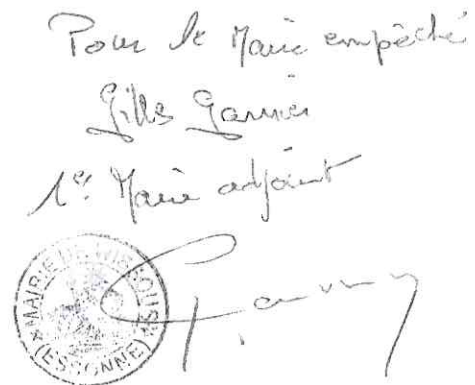 Pour le Maire empêché
Gilles Garnier
1er Maire adjoint
MAIRIE DE WISSOUS
(ESSONNE)